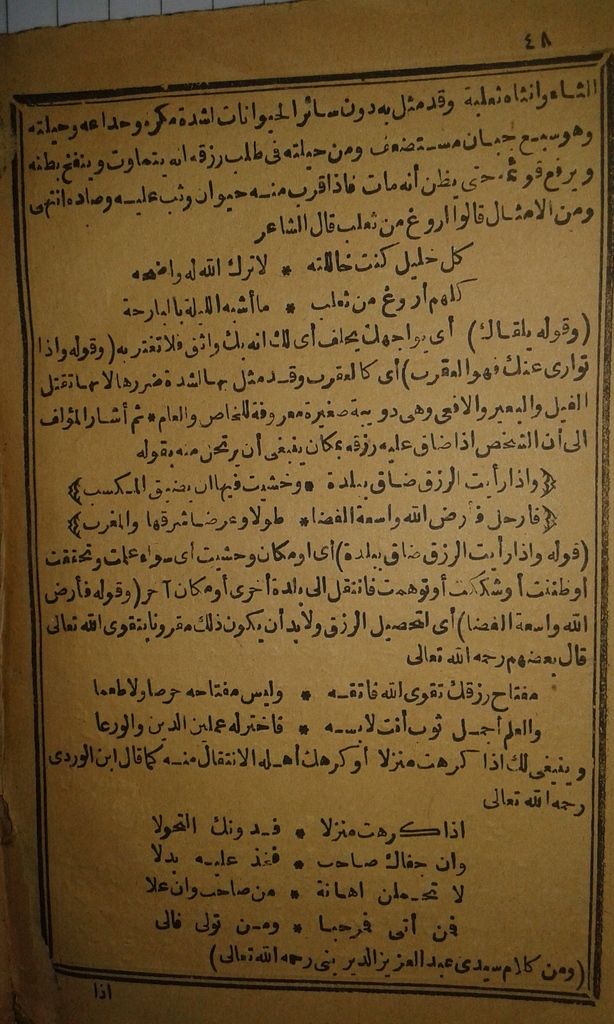 ٤٨
الثاء وانثاه ثعلبة وقد مثل به دون سائر الحيوانات لشدة مكره وخداعه وحيلته
وهو سبع جبان مستضعف ومن حيلته فى طلب رزقه انه يتماوت وينفخ بطنه
ويرفع قوائمه حتى يظن أنه مات فاذا قرب منه حيوان وثب عليه وصاده انتهى
ومن الامثال قالوا اروغ من ثعلب قال الشاعر
كل خليل كنت خاللته * لا ترك الله له واضحه
كلهم أروغ من ثعلب * ما أشبه الليلة بالبارحة
(وقوله يلقاك) أى يواجهك يحلف أى لك انه بك واثق فلا تغتر به (وقوله واذا
توارى عنك فهو العقرب) أى كالعقرب وقد مثل بها لشدة ضررها لانها تقتل
الفيل والبعير والافعى وهى دويبة صغيرة معروفة للخاص والعام * ثم أشار المؤلف
الى أن الشخص اذا ضاق عليه رزقه بمكان ينبغى أن يرتحل منه بقوله
﴿واذا رأيت الرزق ضاق ببلدة * وخشيت فيها ان يضيق المكسب﴾
﴿فارحل فأرض الله واسعة الفضا * طولا وعرضا شرقها والمغرب﴾
(قوله واذا رأيت الرزق ضاق ببلدة) أى او مكان وخشيت أى سواء علمت وتحققت
أو ظننت أو شككت أو توهمت فانتقل الى بلدة أخرى أو مكان آخر (وقوله فأرض
الله واسعة الفضا) أى لتحصيل الرزق ولابد أن يكون ذلك مقرونا بتقوى الله تعالى
قال بعضهم رحمه الله تعالى
مفتاح رزقك تقوى الله فاتقه * وليس مفتاحه حرصا ولا طمعا
والعلم أجمل ثوب أنت لابسه * فاختر له عملين الدين والورعا
وينبغى لك اذا كرهت منزلا أو كرهك أهله الانتقال منه كما قال ابن الوردى
رحمه الله تعالى
اذا كرهت منزلا * فدونك التحولا
وان جفاك صاحب * فخذ عليه بدلا
لا تحملن اهانة * من صاحب وان علا
فمن أتى فمرحبا * ومن تولى فالى
(ومن كلام سيدى عبد العزيز الديرينى رحمه الله تعالى)
اذا